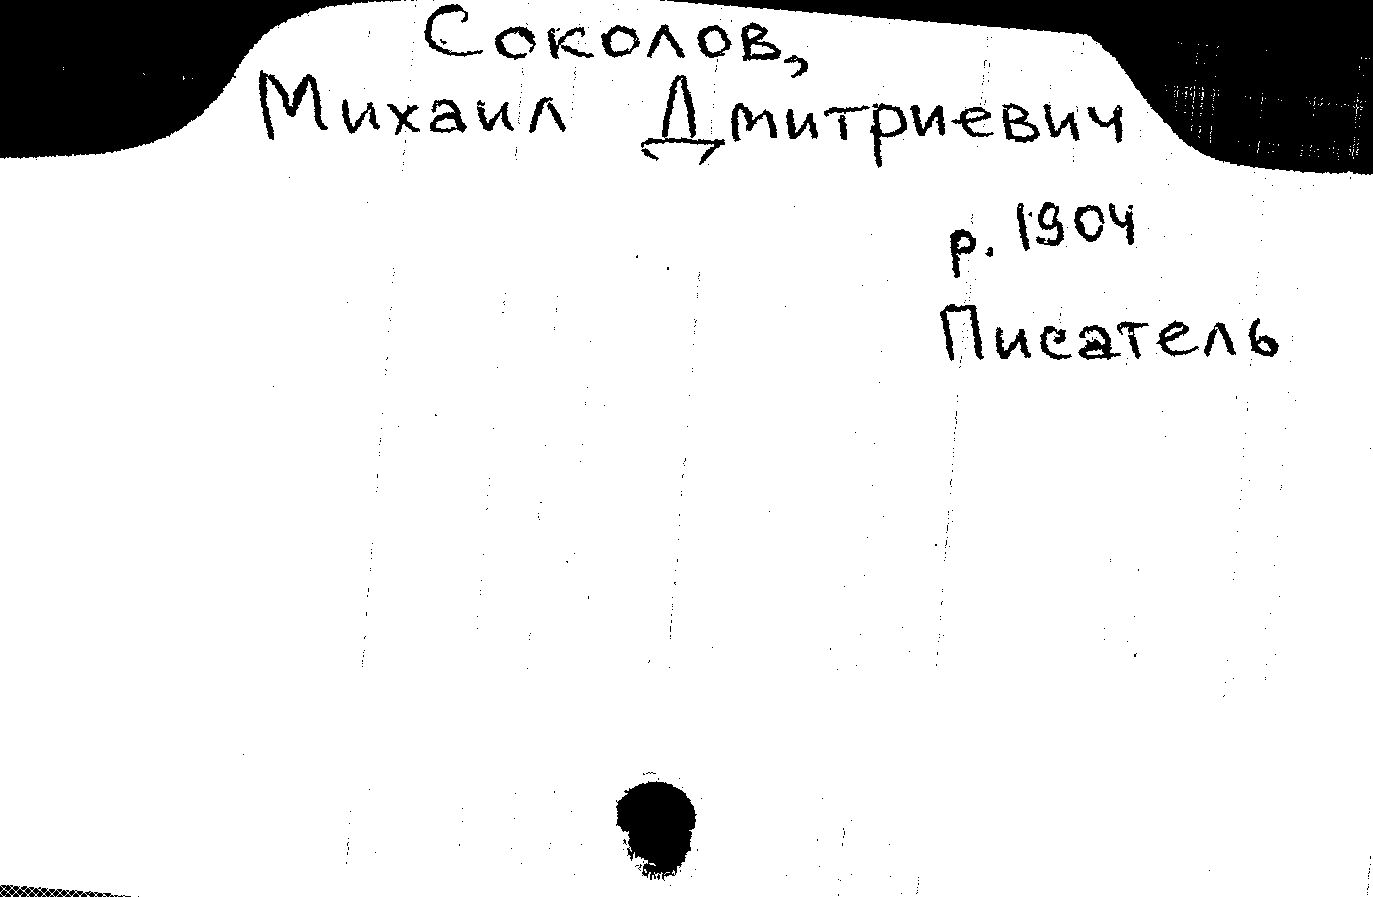 Соколов,
Михаил Дмитриевич
р. 1904
Писатель